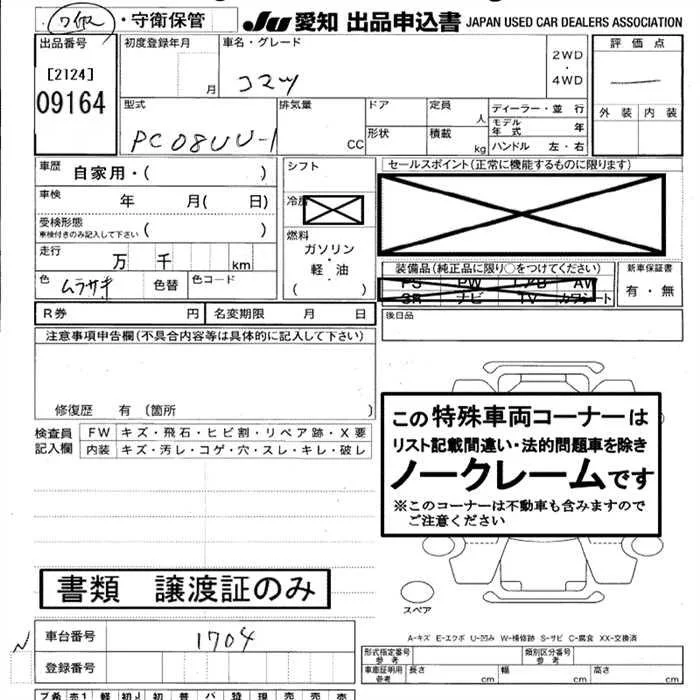 ・守衛保管 JU 愛知 出品申込書 JAPAN USED CAR DEALERS ASSOCIATION
出品番号 初度登録年月 車名・グレード 評価点
[2124] 月 コマツ 2WD・4WD
09164 外装 内装
型式 排気量 ドア 定員 ディーラー・並行
PC08UU-1 CC 形状 人 モデル年式 年
積載 kg ハンドル 左・右
車歴 自家用・( ) シフト セールスポイント(正常に機能するものに限ります)
車検 年 月( 日) 冷房
受検形態 ( )
車検付きのみ記入して下さい
燃料
走行 万 千 km ガソリン・軽油
( )
装備品(純正品に限り○をつけてください) 新車保証書
PS PW エアB AV 有・無
SR ナビ TV カワシート
色 ムラサキ 色替 色コード
後日品
R券 円 名変期限 月 日
注意事項申告欄(不具合内容等は具体的に記入して下さい)
修復歴 有 〔箇所 〕
検査員記入欄 FW キズ・飛石・ヒビ割・リペア跡・X要
内装 キズ・汚レ・コゲ・穴・スレ・キレ・破レ
この特殊車両コーナーは
リスト記載間違い・法的問題車を除き
ノークレームです
※このコーナーは不動車も含みますので
ご注意ください
書類 譲渡証のみ
スペア
A-キズ E-エクボ U-凹み W-補修跡 S-サビ C-腐食 XX-交換済
車台番号 1704
形式指定番号 参考 類別区分番号 参考
登録番号
車庫証明用 参考 長さ cm 幅 cm 高さ cm